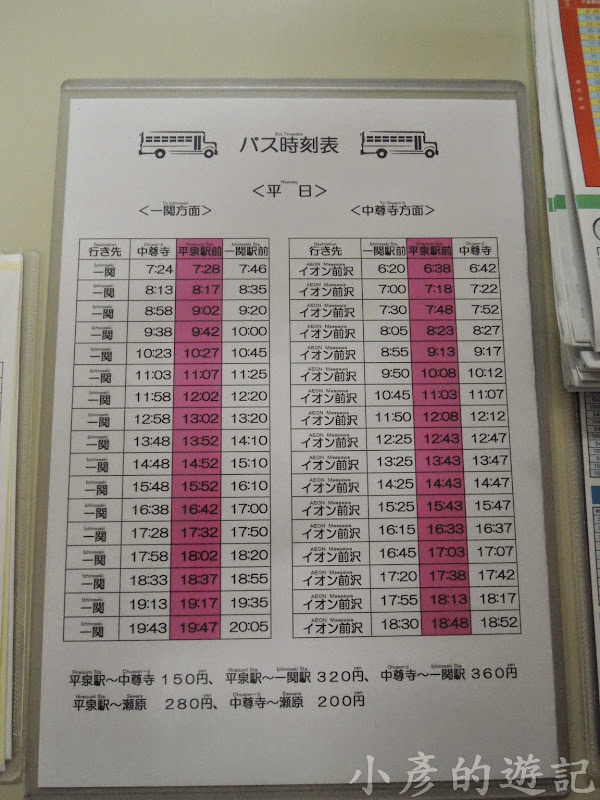 Bus Timetable
バス時刻表
Weekday
<平　日>
To Ichinoseki
<一関方面>
To Chuson-ji
<中尊寺方面>
Destination Chuson-ji Hiraizumi Sta. Ichinoseki Sta.
行き先 中尊寺 平泉駅前 一関駅前
Ichinoseki
一関 7:24 7:28 7:46
Ichinoseki
一関 8:13 8:17 8:35
Ichinoseki
一関 8:58 9:02 9:20
Ichinoseki
一関 9:38 9:42 10:00
Ichinoseki
一関 10:23 10:27 10:45
Ichinoseki
一関 11:03 11:07 11:25
Ichinoseki
一関 11:58 12:02 12:20
Ichinoseki
一関 12:58 13:02 13:20
Ichinoseki
一関 13:48 13:52 14:10
Ichinoseki
一関 14:48 14:52 15:10
Ichinoseki
一関 15:48 15:52 16:10
Ichinoseki
一関 16:38 16:42 17:00
Ichinoseki
一関 17:28 17:32 17:50
Ichinoseki
一関 17:58 18:02 18:20
Ichinoseki
一関 18:33 18:37 18:55
Ichinoseki
一関 19:13 19:17 19:35
Ichinoseki
一関 19:43 19:47 20:05
Destination Ichinoseki Sta. Hiraizumi Sta. Chuson-ji
行き先 一関駅前 平泉駅前 中尊寺
AEON Maesawa
イオン前沢 6:20 6:38 6:42
AEON Maesawa
イオン前沢 7:00 7:18 7:22
AEON Maesawa
イオン前沢 7:30 7:48 7:52
AEON Maesawa
イオン前沢 8:05 8:23 8:27
AEON Maesawa
イオン前沢 8:55 9:13 9:17
AEON Maesawa
イオン前沢 9:50 10:08 10:12
AEON Maesawa
イオン前沢 10:45 11:03 11:07
AEON Maesawa
イオン前沢 11:50 12:08 12:12
AEON Maesawa
イオン前沢 12:25 12:43 12:47
AEON Maesawa
イオン前沢 13:25 13:43 13:47
AEON Maesawa
イオン前沢 14:25 14:43 14:47
AEON Maesawa
イオン前沢 15:25 15:43 15:47
AEON Maesawa
イオン前沢 16:15 16:33 16:37
AEON Maesawa
イオン前沢 16:45 17:03 17:07
AEON Maesawa
イオン前沢 17:20 17:38 17:42
AEON Maesawa
イオン前沢 17:55 18:13 18:17
AEON Maesawa
イオン前沢 18:30 18:48 18:52
Hiraizumi Sta. Chuson-ji yen Hiraizumi Sta. Ichinoseki Sta. yen Chuson-ji Ichinoseki Sta. yen
平泉駅～中尊寺 150円、平泉駅～一関駅 320円、中尊寺～一関駅 360円
Hiraizumi Sta. Sewara yen Chuson-ji Sewara yen
平泉駅～瀬原 280円、中尊寺～瀬原 200円
小彥的遊記